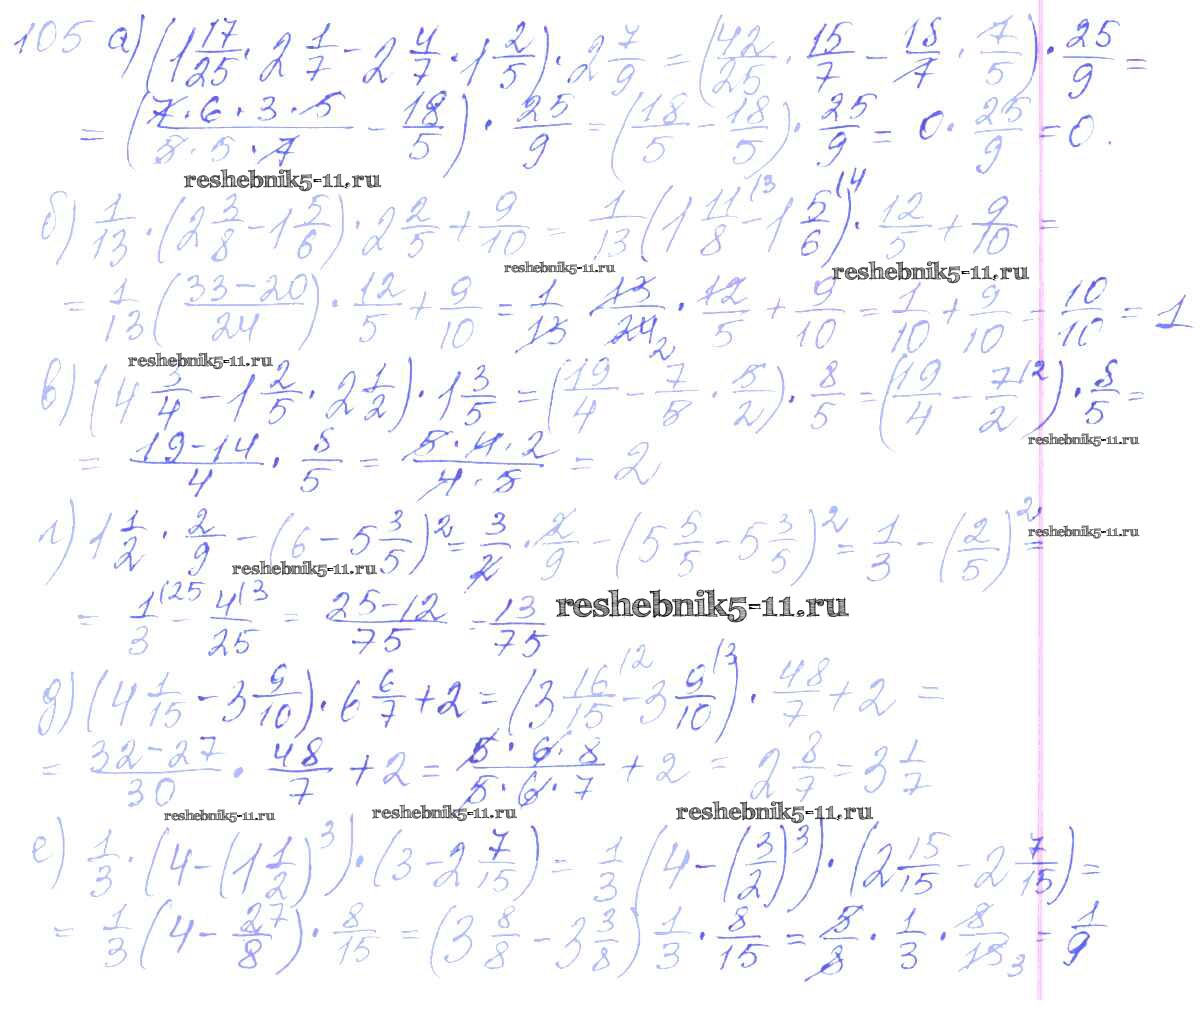 105 а) (1 17/25 · 2 1/7 − 2 4/7 · 1 2/5) · 2 7/9 = (42/25 · 15/7 − 18/7 · 7/5) · 25/9 =
= (7·6·3·5/5·5·7 − 18/5) · 25/9 = (18/5 − 18/5) · 25/9 = 0 · 25/9 = 0.
reshebnik5-11.ru
б) 1/13 · (2 3/8 − 1 5/6) · 2 2/5 + 9/10 = 1/13 (1 11/8 (3 − 1 5/6 (4) · 12/5 + 9/10 =
reshebnik5-11.ru
reshebnik5-11.ru
= 1/13 (33−20/24) · 12/5 + 9/10 = 1/13 13/24 2 · 12/5 + 9/10 = 1/10 + 9/10 = 10/10 = 1
reshebnik5-11.ru
в) (4 3/4 − 1 2/5 · 2 1/2) · 1 3/5 = (19/4 − 7/5 · 5/2) · 8/5 = (19/4 − 7/2 (2) · 8/5 =
reshebnik5-11.ru
= 19−14/4 · 8/5 = 5·4·2/4·5 = 2
г) 1 1/2 · 2/9 − (6 − 5 3/5)² = 3/2 · 2/9 − (5 5/5 − 5 3/5)² = 1/3 − (2/5)² =
reshebnik5-11.ru
reshebnik5-11.ru
= 1/3 (25 − 4/25 (3 = 25−12/75 = 13/75
reshebnik5-11.ru
д) (4 1/15 − 3 9/10) · 6 6/7 + 2 = (3 16/15 (2 − 3 9/10 (3) · 48/7 + 2 =
= 32−27/30 · 48/7 + 2 = 5·6·8/5·6·7 + 2 = 2 8/7 = 3 1/7
reshebnik5-11.ru
reshebnik5-11.ru
reshebnik5-11.ru
е) 1/3 · (4 − (1 1/2)³) · (3 − 2 7/15) = 1/3 (4 − (3/2)³) · (2 15/15 − 2 7/15) =
= 1/3 (4 − 27/8) · 8/15 = (3 8/8 − 3 3/8) 1/3 · 8/15 = 5/8 · 1/3 · 8/15 3 = 1/9